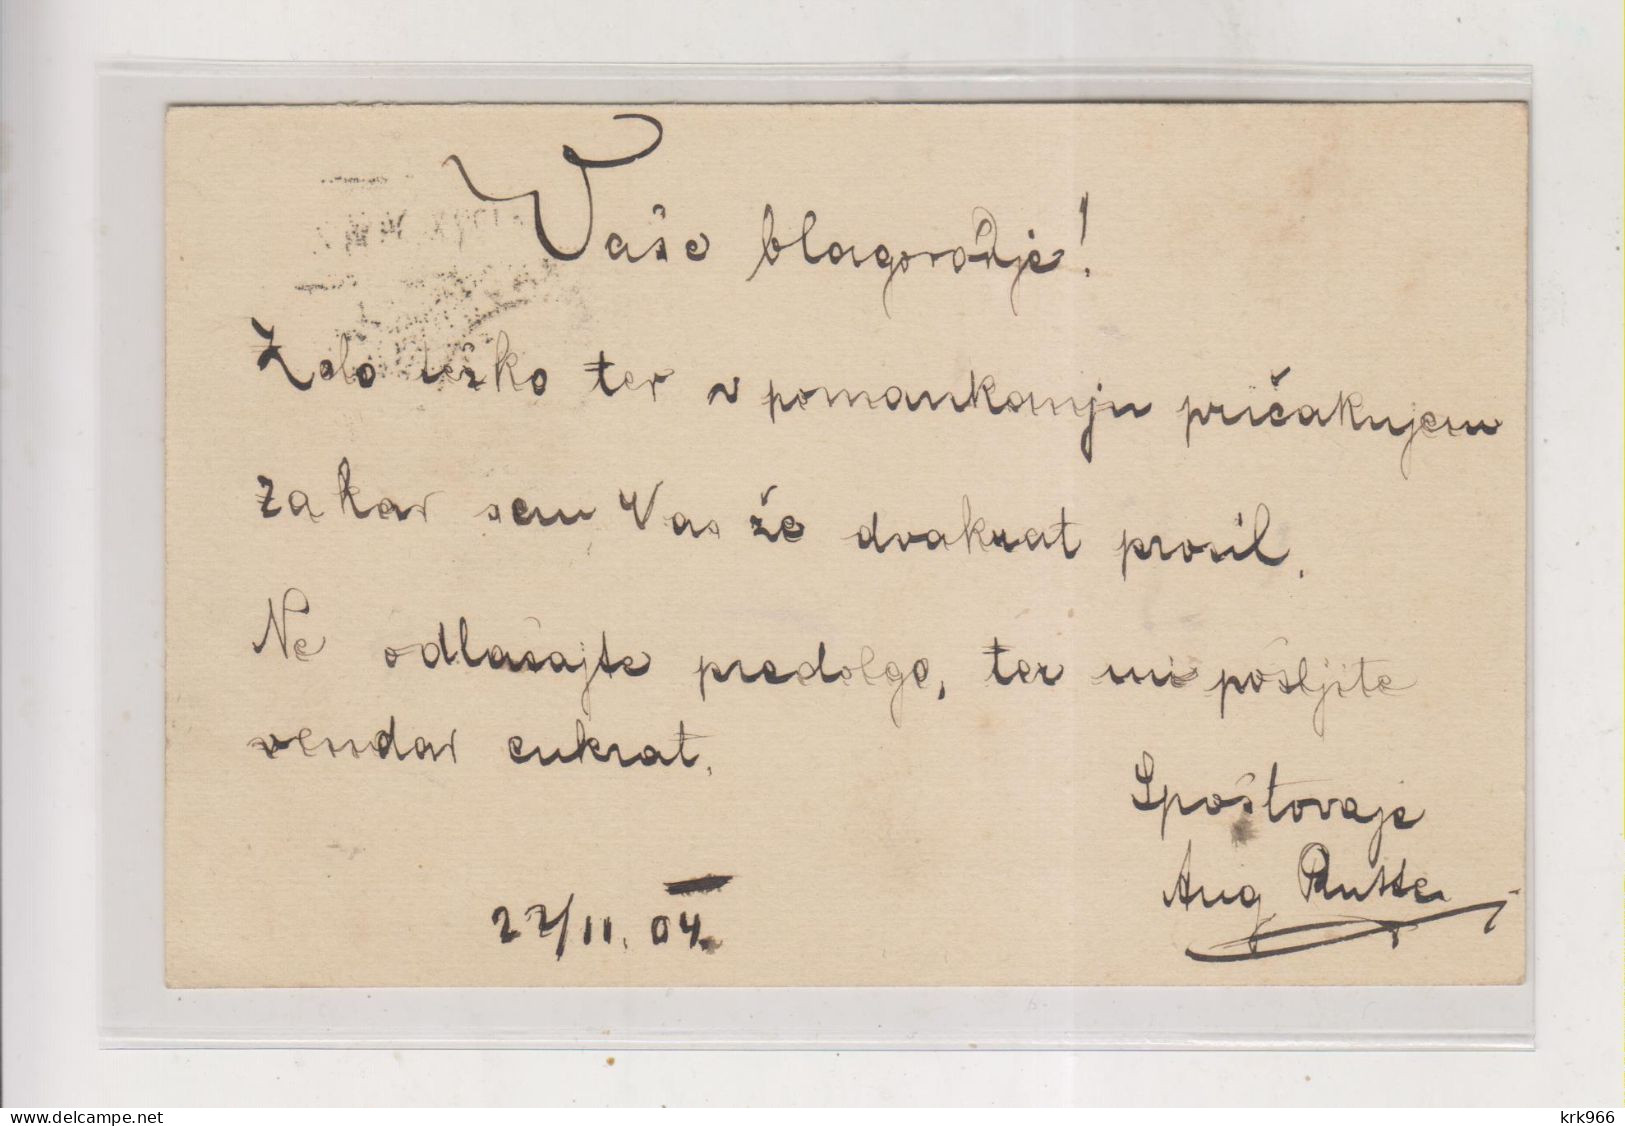 Vaše blagorodje!
Zelo težko ter v pomankanju pričakujem
za kar sem Vas že dvakrat prosil.
Ne odlašajte predolgo, ter mi pošljite
vendar enkrat.
Spoštovaje
Aug
27/11. 04.
www.delcampe.net
krk966